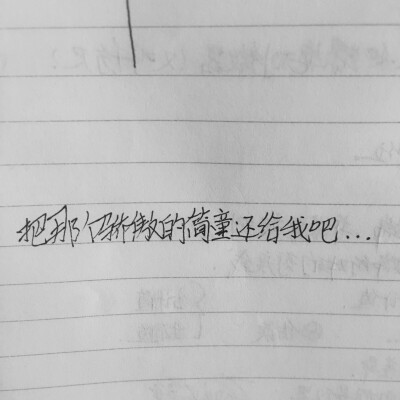 把那个骄傲的简童还给我吧...